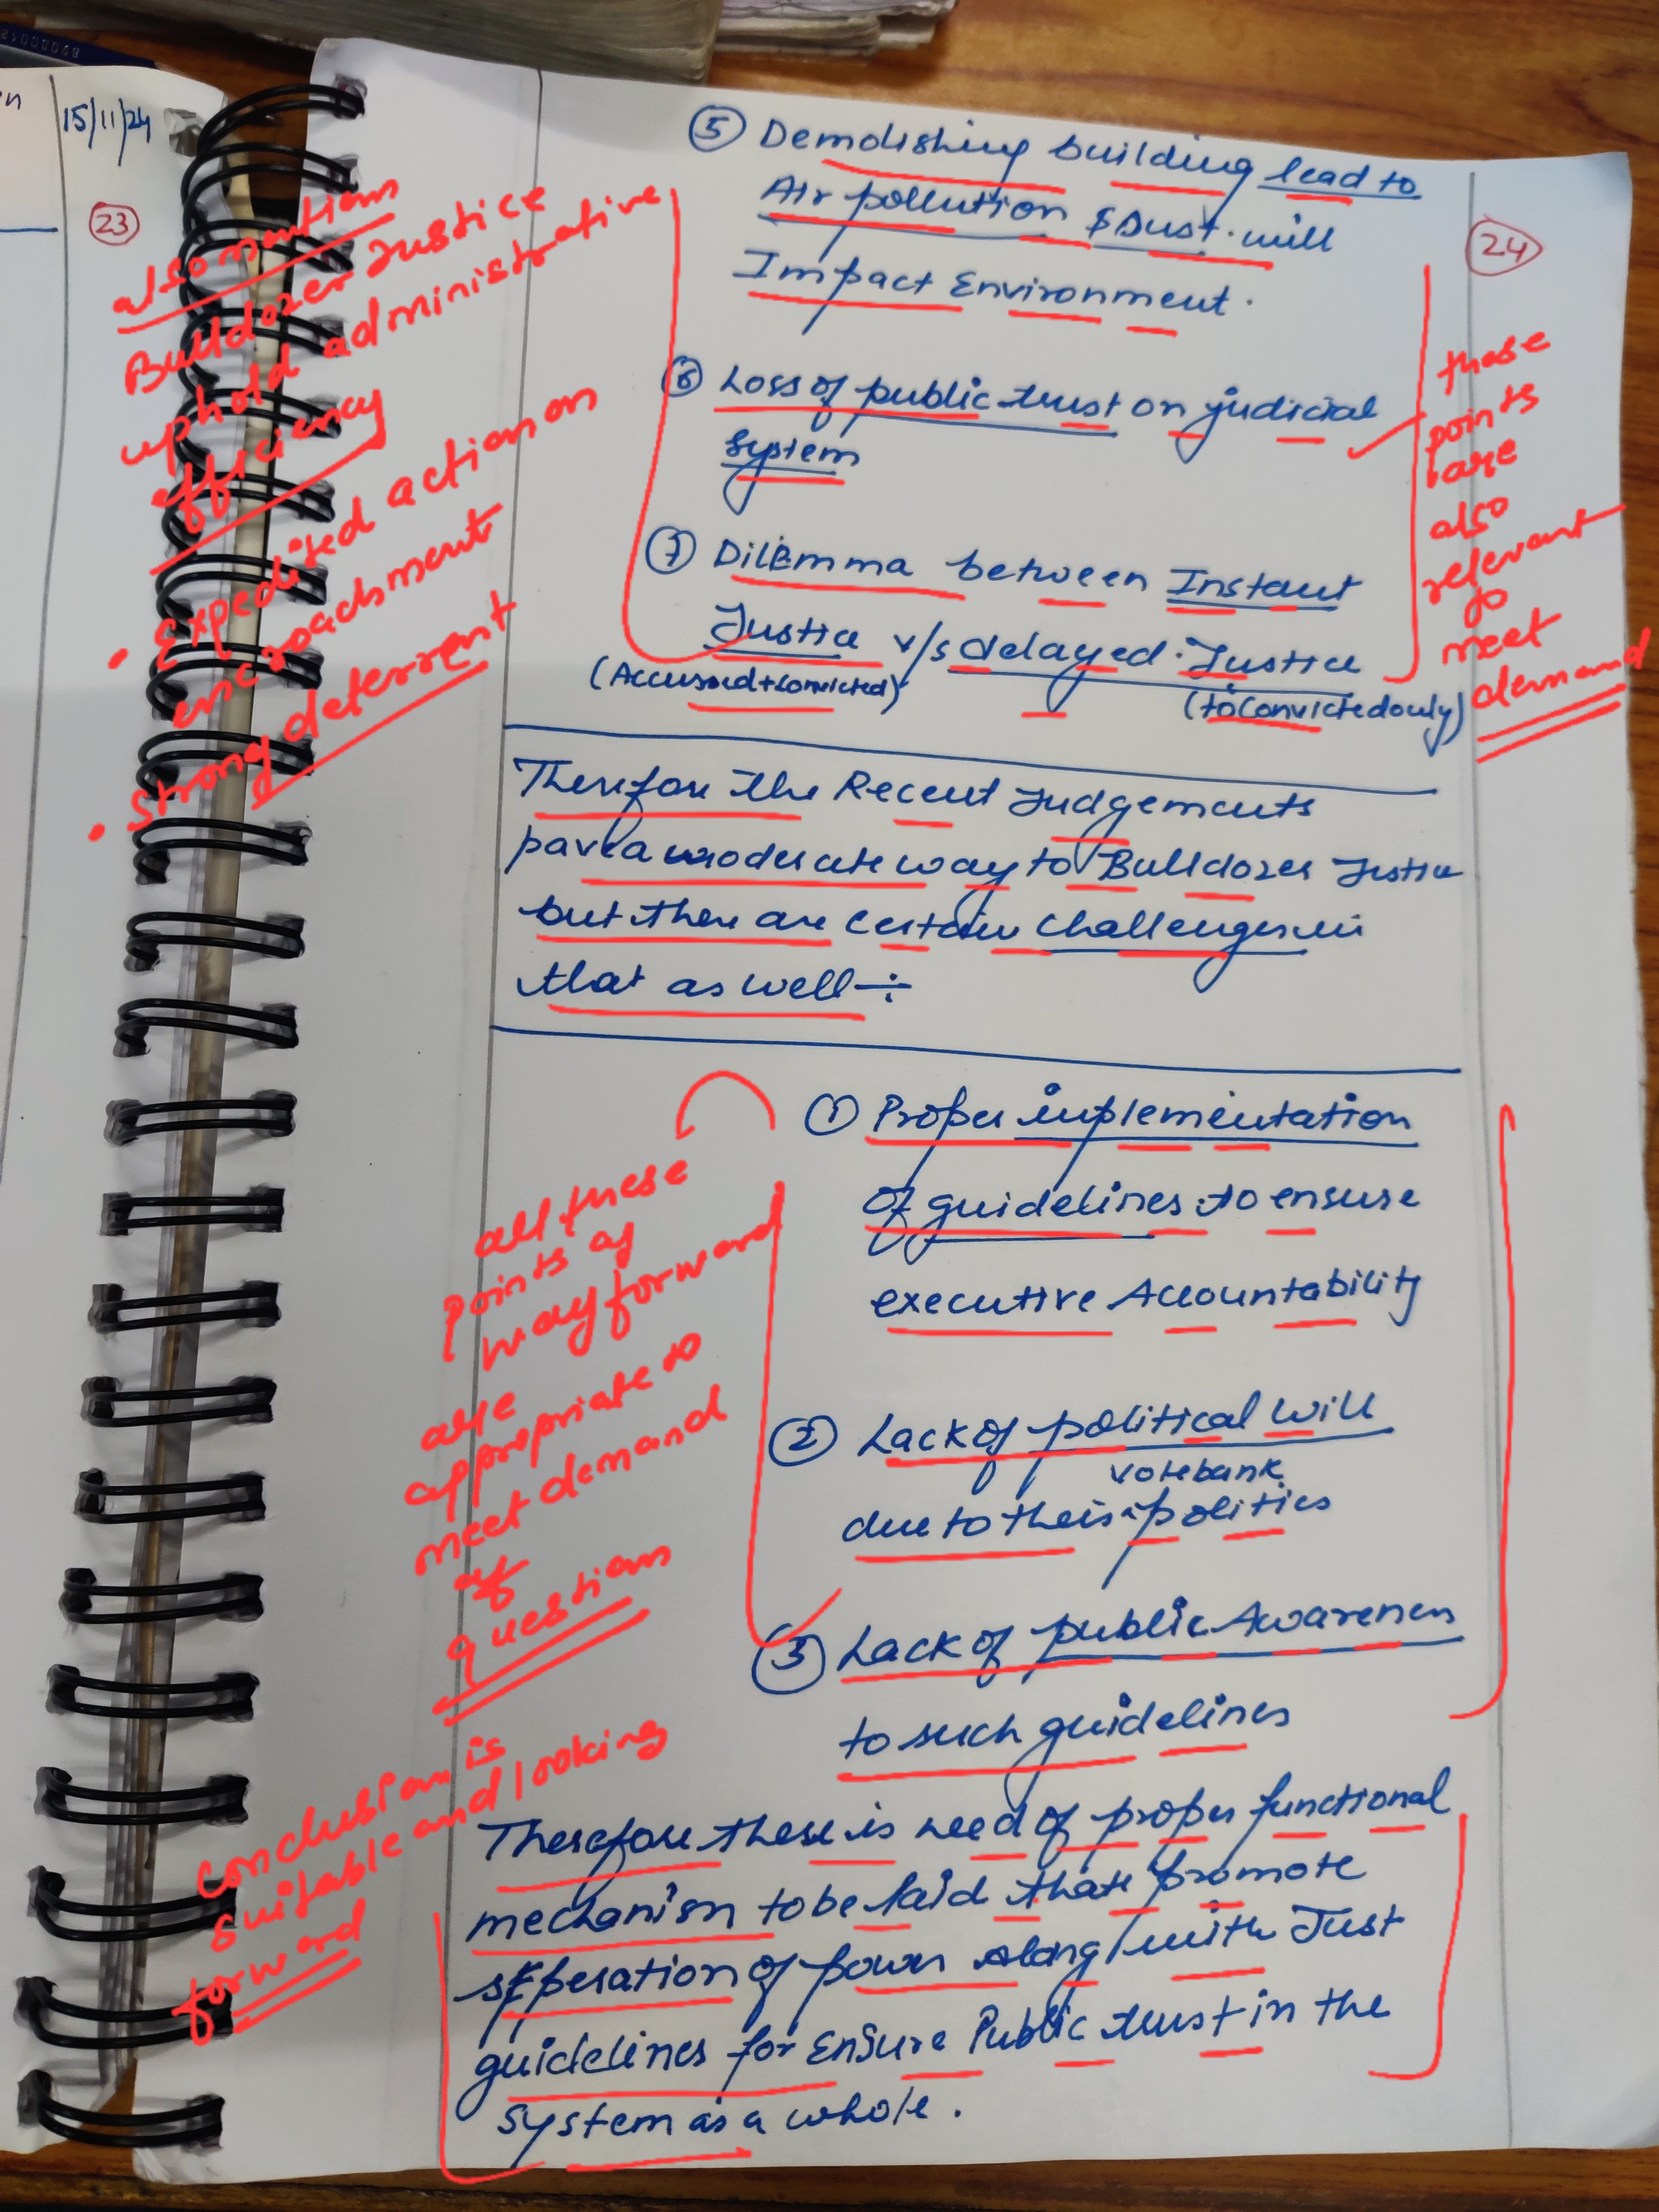 15/11/24
23
also mention
Bulldozer Justice
uphold administrative
efficiency
• Expedited action on
encroachment
• Strong deterrent
⑤ Demolishing building lead to
Air pollution & Dust. will
Impact Environment.
24
⑥ Loss of public trust on judicial
system
⑦ Dilemma between Instant
Justice v/s delayed Justice
(Accussed + Convicted)
(to convicted only)
these
points
are
also
relevant
to
meet
demand
Therefore the Recent Judgements
pave a moderate way to Bulldozer Justice
but there are certain challenges in
that as well ÷
① Proper implementation
of guidelines to ensure
executive Accountability
② Lack of political will
votebank
due to their politics
③ Lack of public Awareness
to such guidelines
all these
points of
way forward
are
appropriate to
meet demand
of
question
Therefore there is need of proper functional
mechanism to be laid that promote
seperation of power along with Just
guidelines for Ensure Public trust in the
system as a whole.
conclusion is
suitable and looking
forward